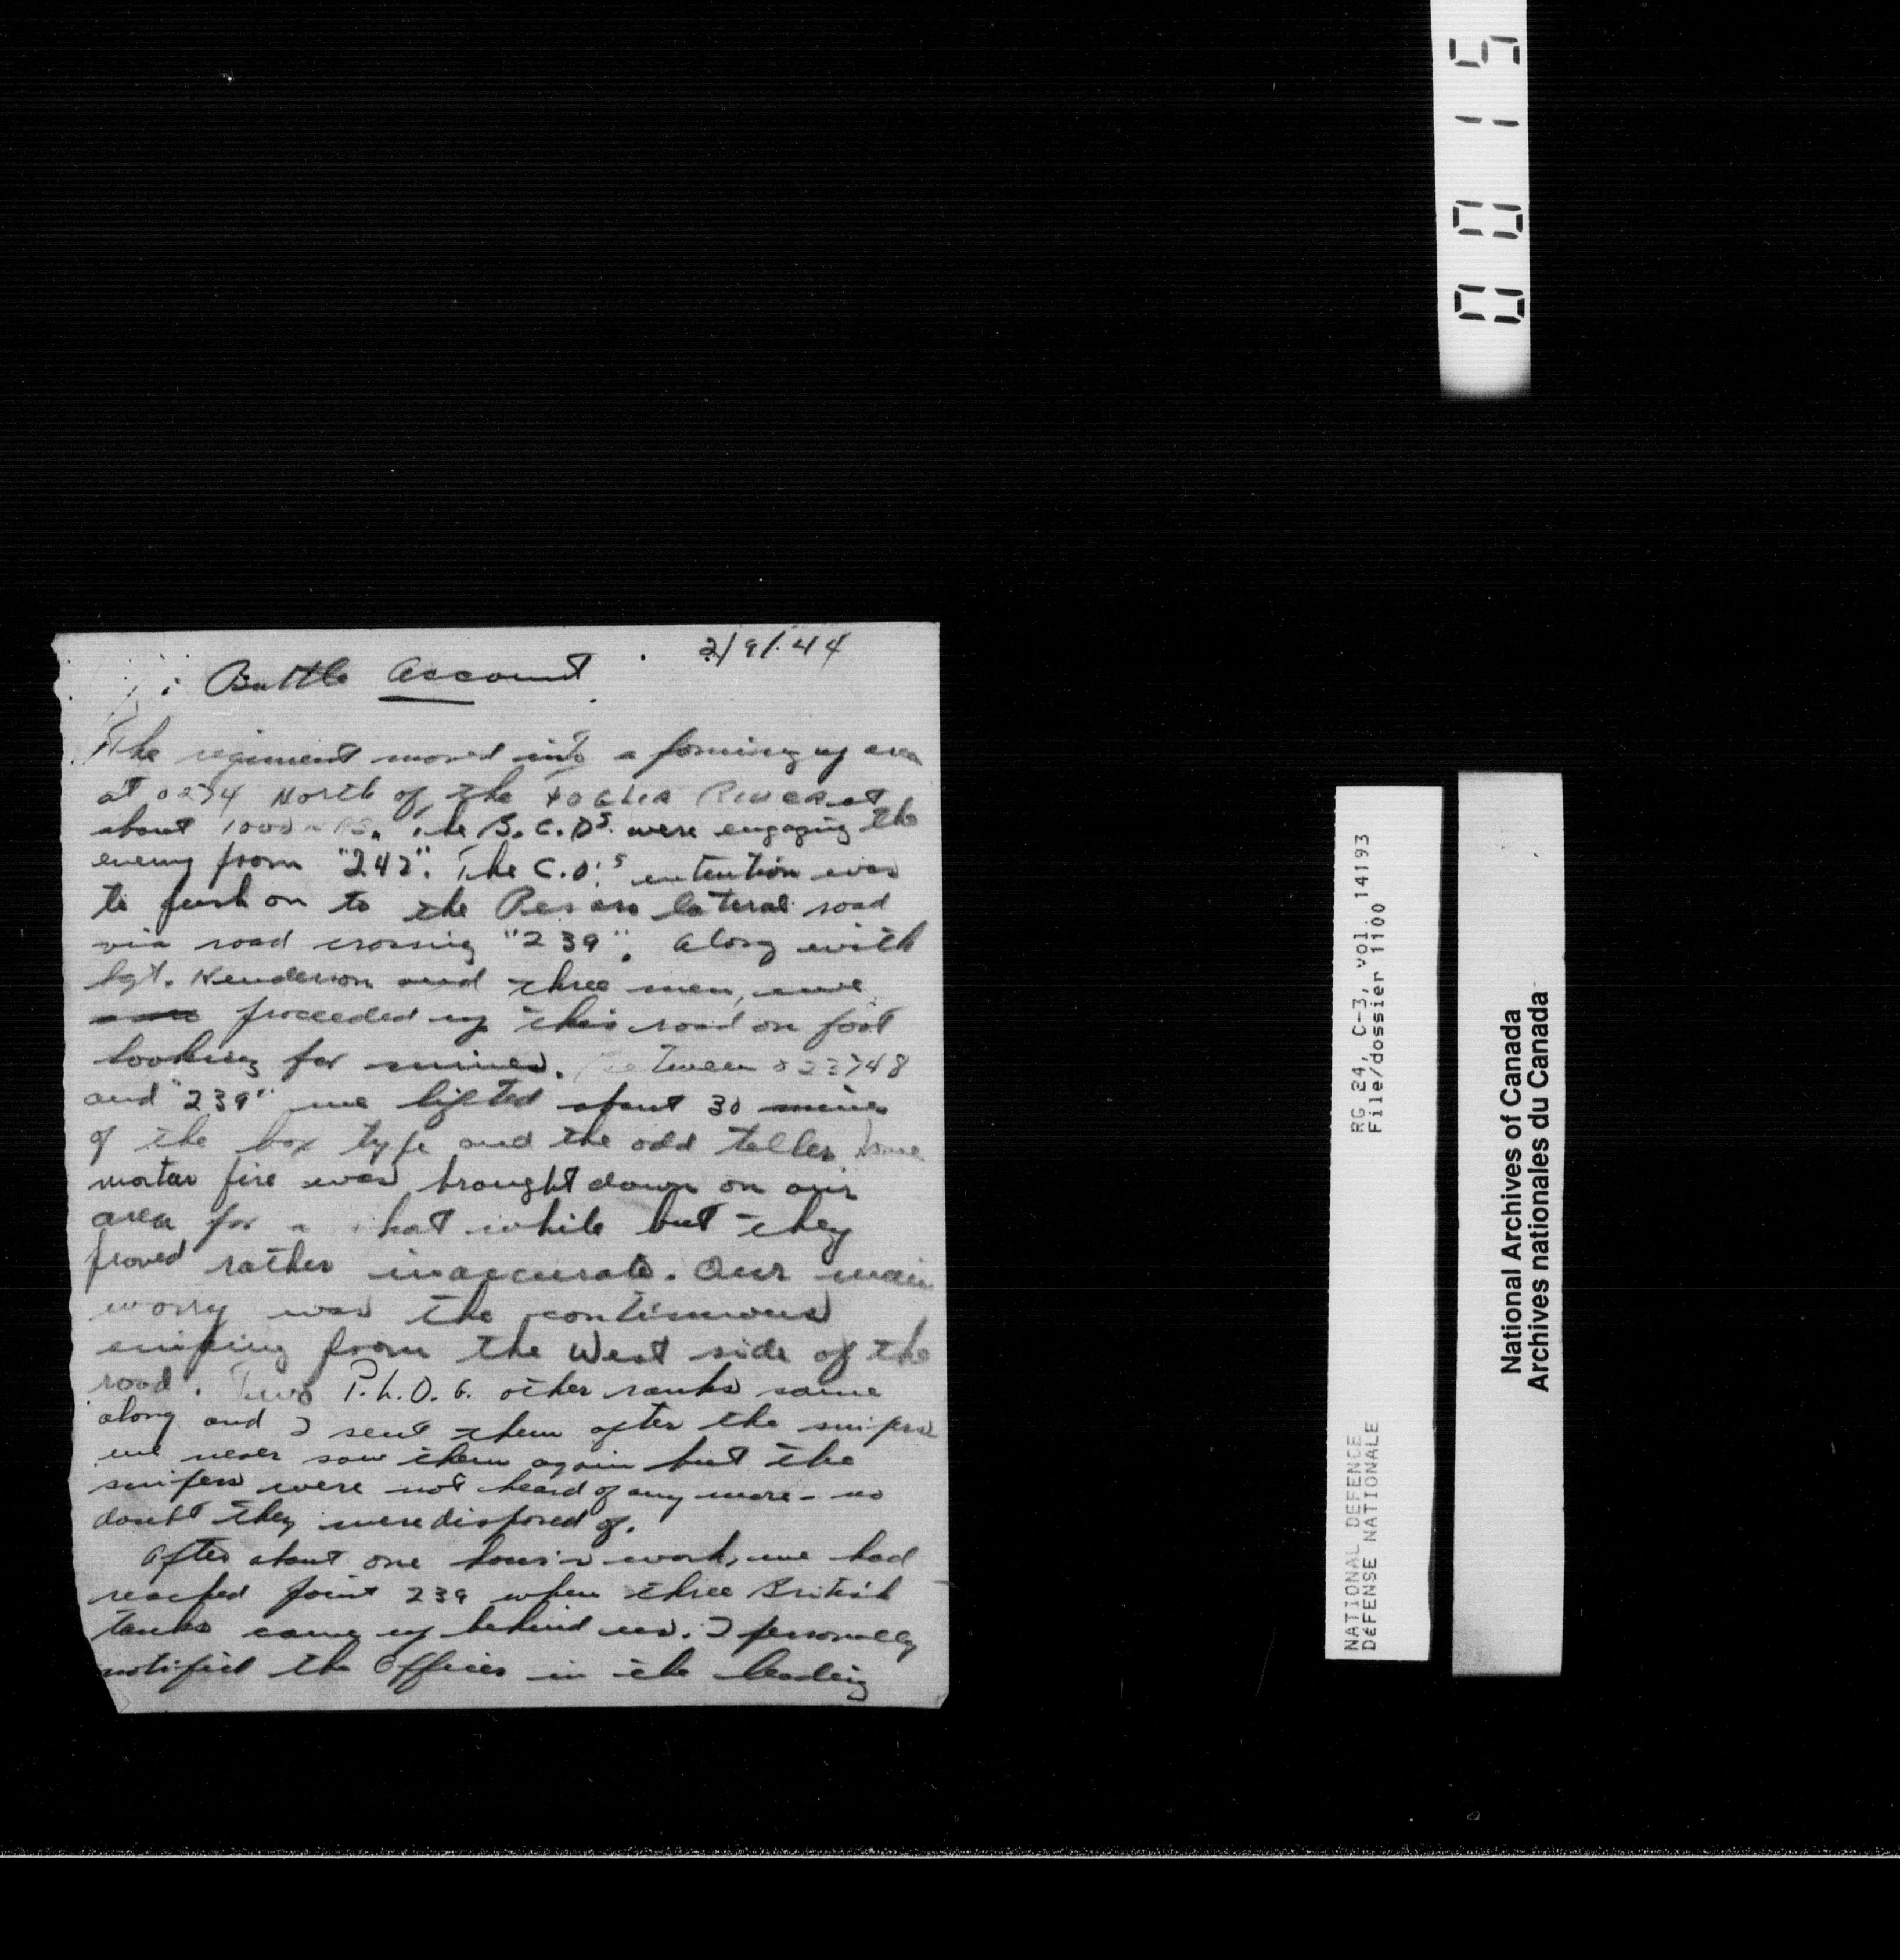 2/9/44
Battle Account
The regiment moved into a forming up area
at 0274 North of the FOGLIA RIVER at
about 1000 The B.C.Ds. were engaging the
enemy from "242". The C.O.'s intention was
to push on to the Pesaro lateral road
via road crossing "239". Along with
Sgt. Henderson and three men, we
proceeded up this road on foot
looking for mines. Between 023748
and "239" we lifted about 30 mines
of the box type and the odd teller. Some
mortar fire was brought down on our
area for a while but they
proved rather inaccurate. Our main
worry was the continuous
sniping from the West side of the
road. Two P.L.D.G. other ranks came
along and I sent them after the snipers
we never saw them again but the
snipers were not heard of any more - no
doubt they were disposed of.
After about one hour's work, we had
reached point 239 when three British
tanks came up behind us. I personally
notified the Officer in the leading
0015
RG 24, C-3, vol. 14193
File/dossier 1100
NATIONAL DEFENCE
DÉFENSE NATIONALE
National Archives of Canada
Archives nationales du Canada